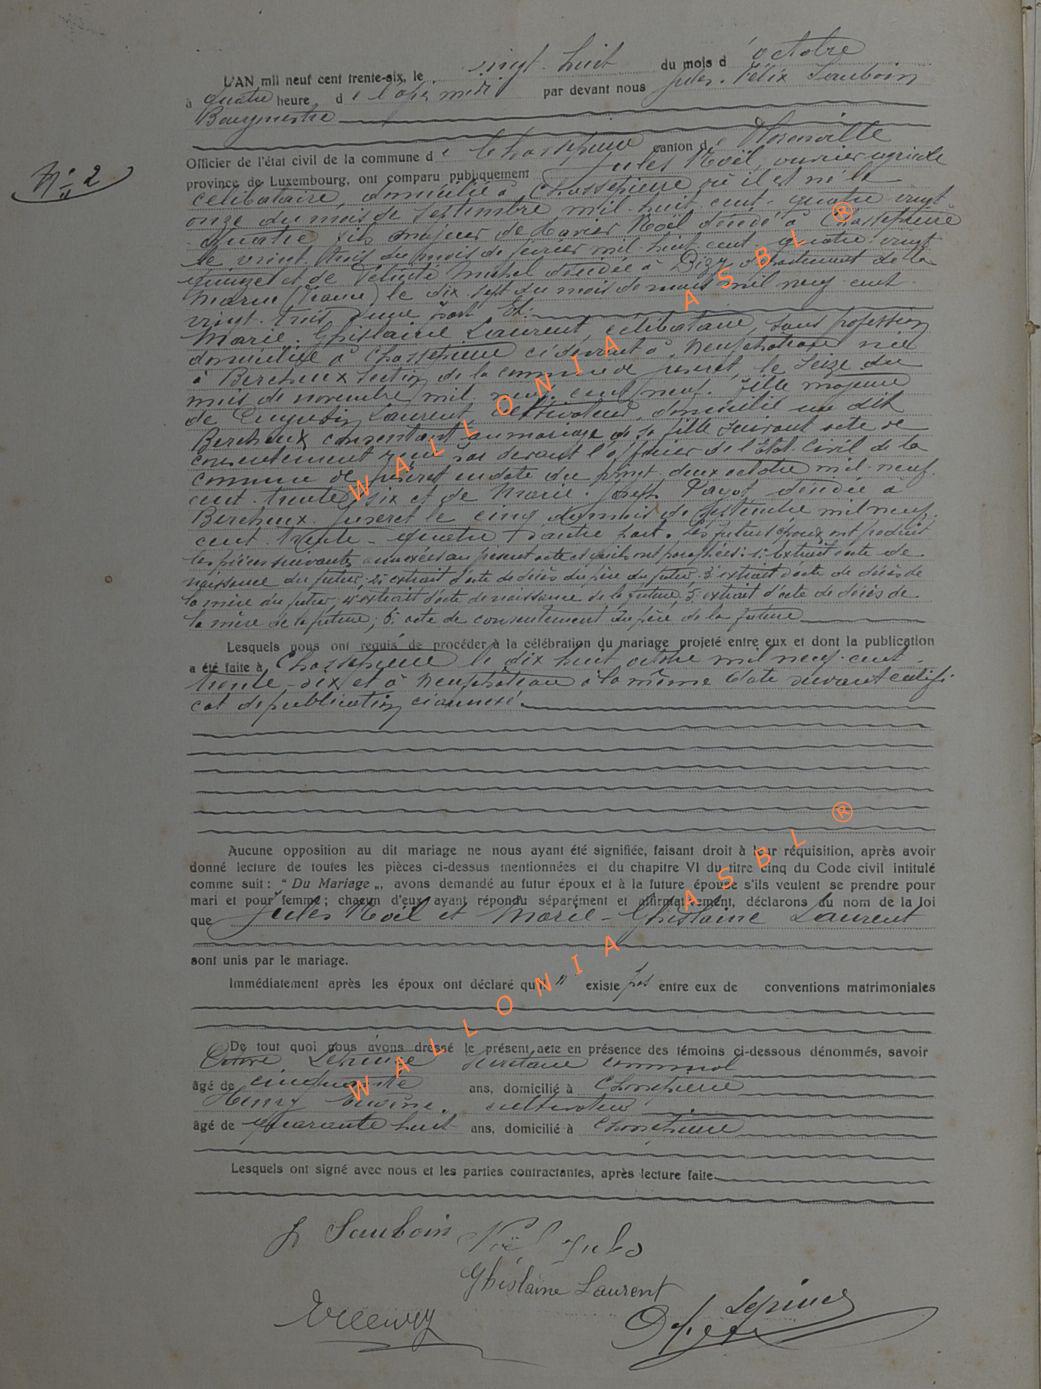 L'AN mil neuf cent trente-six, le vingt-huit du mois d'octobre
à quatre heure de l'après midi par devant nous Jules-Félix Sauboin
Bourgmestre
Officier de l'état civil de la commune de Chassepierre canton de Florenville
province de Luxembourg, ont comparu publiquement Jules Noël, ouvrier agricole
N° 2
célibataire, domicilié à Chassepierre où il est né le
onze du mois de septembre mil huit cent quatre vingt
quatre fils majeur de Xavier Noël décédé à Chassepierre
le vingt trois du mois de février mil huit cent quatre vingt
quinze et de Michel décédée à Dizy département de la
Marne (France) le dix sept du mois de mars mil neuf cent
vingt-trois d'une part Et
Marie-Ghislaine Laurent, célibataire, sans profession
domiciliée à Chassepierre ci devant à Neufchâteau née
à Bercheux section de la commune de Juseret, le seize du
mois de novembre mil neuf cent neuf. Fille majeure
de Laurent cultivateur domicilié au dit
Bercheux consentant au mariage de sa fille suivant acte de
consentement reçu par devant l'officier de l'état civil de la
commune de Juseret en date du vingt-deux octobre mil neuf
cent trente six et de Marie-Joseph décédée à
Bercheux-Juseret le cinq du mois de septembre mil neuf
cent trente-quatre d'autre part. Les futurs époux ont produit
les pièces suivantes annexées au présent acte et qu'ils ont paraphées: 1° Extrait d'acte de
naissance du futur; 2° extrait d'acte de décès du père du futur; 3° extrait d'acte de décès de
la mère du futur; 4° extrait d'acte de naissance de la future; 5° extrait d'acte de décès de
la mère de la future; 6° acte de consentement du père de la future
Lesquels nous ont requis de procéder à la célébration du mariage projeté entre eux et dont la publication
a été faite à Chassepierre le dix huit octobre mil neuf cent
trente-six et à Neufchâteau à la même date suivant certifi-
cat de publication ci annexé.
Aucune opposition au dit mariage ne nous ayant été signifiée, faisant droit à leur réquisition, après avoir
donné lecture de toutes les pièces ci-dessus mentionnées et du chapitre VI du titre cinq du Code civil intitulé
comme suit : " Du Mariage „, avons demandé au futur époux et à la future épouse s'ils veulent se prendre pour
mari et pour femme ; chacun d'eux ayant répondu séparément et affirmativement, déclarons au nom de la loi
que Jules Noël et Marie-Ghislaine Laurent
sont unis par le mariage.
Immédiatement après les époux ont déclaré qu'il n'existe pas entre eux de conventions matrimoniales
De tout quoi nous avons dressé le présent acte en présence des témoins ci-dessous dénommés, savoir
Lepinne secrétaire communal
âgé de cinquante ans, domicilié à Chassepierre
Henry cultivateur
âgé de quarante huit ans, domicilié à Chassepierre
Lesquels ont signé avec nous et les parties contractantes, après lecture faite.
J Sauboin Noël Jules
Ghislaine Laurent
WALLONIA ASBL ®
WALLONIA ASBL ®